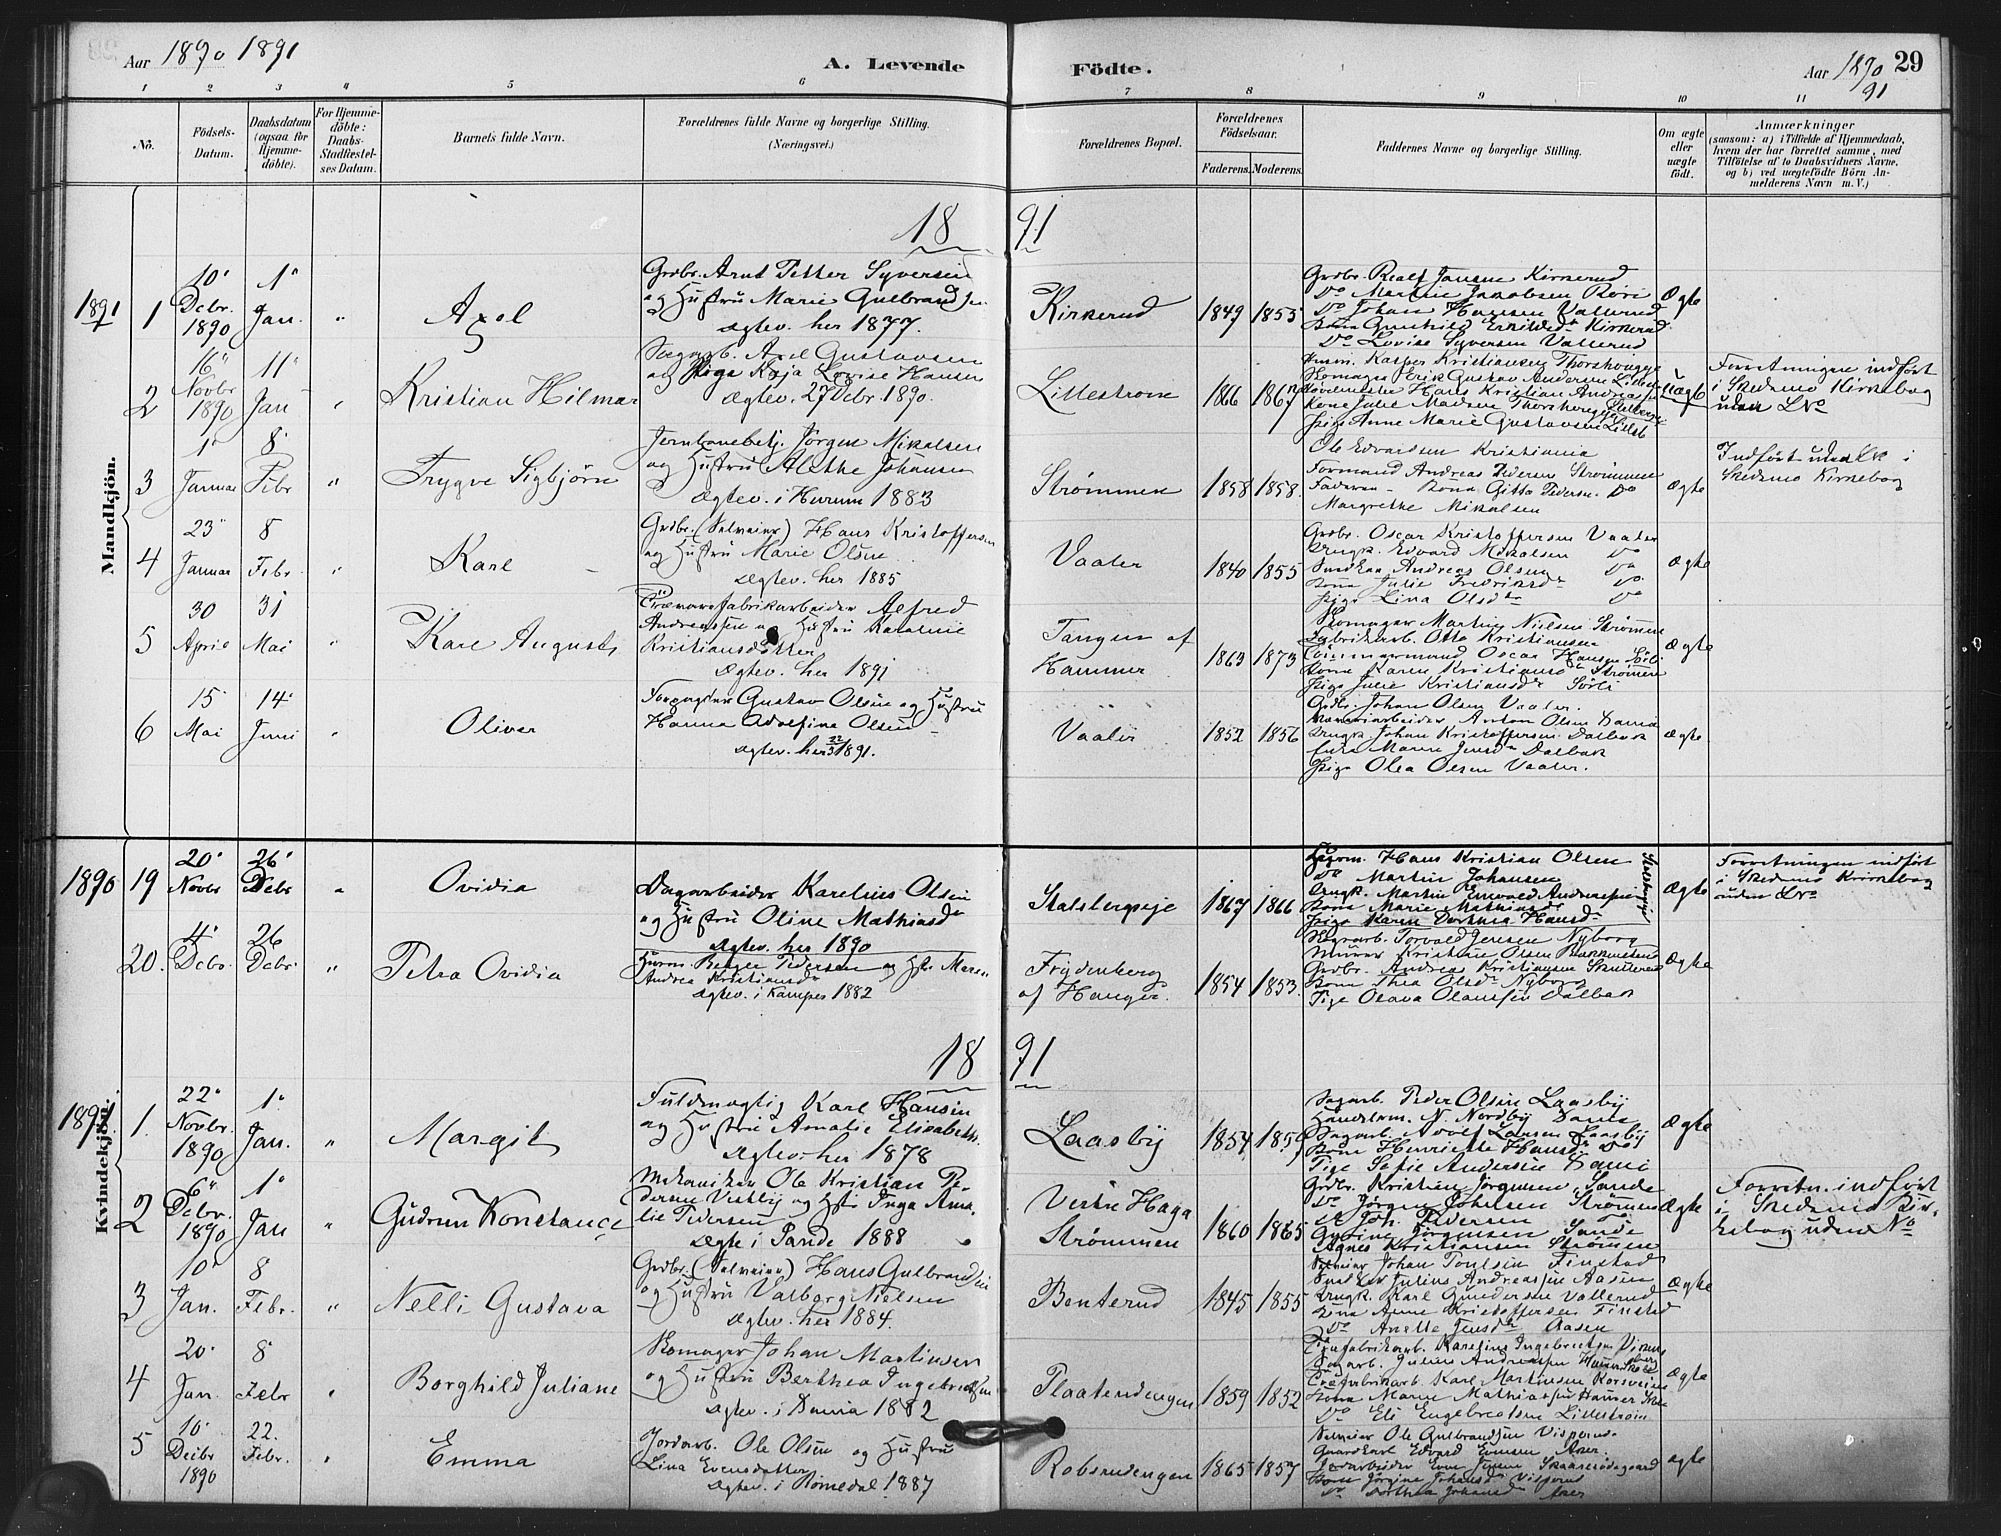 Aar 1890 1891
A. Levende
Födte.
Aar 1890 91
29
1 2 3 4 5 6 7 8 9 10 11
No.
Födsels-Datum.
Daabsdatum (ogsaa for Hjemme-döbte).
For Hjemme-döbte: Daabs-Stadfæstel-ses Datum.
Barnets fulde Navn.
Forældrenes fulde Navne og borgerlige Stilling. (Næringsvei.)
Forældrenes Bopæl.
Forældrenes Födselsaar.
Faderens. Moderens.
Faddernes Navne og borgerlige Stilling.
Om ægte eller uægte født.
Anmærkninger
(saasom: a) i Tilfælde af Hjemmedaab,
hvem der har forrettet samme, med
Tilføielse af to Daabsvidners Navne,
og b) ved uægtefødte Börn An-
melderens Navn m. V.)
Mandkjön.
18 91
1891 1
10' Decbr. 1890
1' Jan.
"
Axel
Grdbr. Arnt Petter Syversen
og Hustru Marie Gulbrandsen
Ægtev. her 1877.
Kirkerud
1849 1855
Grdbr. Realf Jansen Kirkerud
Do Martin Jakobsen
Do Johan Hansen Vallerud
Kone Gunhild Kirkerud
Do Lovise Syversen Vallerud
Ægte
2
16" Novbr 1890
11" Jan
"
Kristian Hilmar
Sagarb. Axel Gustavsen
og Pige Kaja Lovise Hansen
Ægtev. 27 Debr. 1890.
Lillestrøm
1866 1867
Husm. Kasper Kristiansen
Skomager Erik Gustav Andersen
Hans Kristian
Kone Julie Madsen
Pige Anne Marie Gustavsen Lillest
Uægte
Forretningen indført
i Skedsmo Kirkebog
uden LNo
3
1' Januar
8' Febr
"
Trygve Sigbjörn
Jernbanebetj. Jörgen Mikalsen
og Hustru Alethe Johansen
Ægtev. i Hurum 1883
Strømmen
1858 1858.
Ole Edvardsen Kristiania
Formand Andreas Pedersen Strømmen
Faderen - Kone Gitta Pedersen. Do
Margrethe Mikalsen
Ægte
Indført uden i
Skedsmo Kirkebog
4
23" Januar
8 Febr.
"
Karl
Grdbr. (Selveier) Hans Kristoffersen
og Hustru Marie Olsen
Ægtev. her 1885
Vaaler
1840 1855
Grdbr. Oscar Kristoffersen Vaaler
Ungk. Edvard Mikalsen Do
Andreas Olsen Do
Kone Julie Fredriksd Do
Pige Lina Olsdtr Do
Ægte
5
30 April
31 Mai
"
Karl August
Alfred
Andreassen og Hustru
Kristiansdatter
Ægtev. her 1891
Tangen af
Hammer
1863 1873
Skomager Martin Nielsen Strømmen
Fabrikarb. Otto Kristiansen
Tømmermand Oscar Hansen
Kone Karen Kristiansd Strømmen
Pige Julie Kristiansd Sørli
Ægte
6
15 Mai
14' Juni
"
Oliver
Gustav Olsen og Hustru
Hanna Adolfine Olsen
Ægtev. her 1891.
Vaaler
1852 1856
Grdbr. Johan Olsen Vaaler.
Anton Olsen
Ungk. Johan Kristoffersen Dalbak
Maren Jensd Dalbak
Pige Olea Olsen Vaaler.
Ægte
Kvindekjön.
1890 19
20' Novbr
26' Debr
"
Ovidia
Dagarbeider Karelius Olsen
og Hustru Oline Mathiasd
Ægtev. her 1890
Stalsbergeje
1867 1866
Husm. Hans Kristian Olsen
Do Martin Johansen
Ungk. Martin Andreassen
Kone Marie Mathiasd
Pige Karen Dorthea Hansd
Ægte
Forretningen indført
i Skedsmo Kirkebog
uden LNo
20.
4' Debr.
26 Debr
"
Petra Ovidia
Husm. Pedersen og Hst. Maren
Andrea Kristiansdr
Ægtev. i Kampen 1882
Frydenberg
af Hanger.
1854 1853.
Sagarb. Torvald Jensen Nyborg
Murer Kristian Olsen
Grdbr. Andreas Kristiansen
Kone Thea Olsd Nyborg
Pige Olava Olausen Dalbak
Ægte
18 91
1891 1.
22' Novbr. 1890
1' Jan.
"
Margit
Fuldmægtig Karl Hansen
og Hustru Amalie Elisabeth
Ægtev. her 1878
Laasby
1854 1859
Sagarb. Peder Olsen Laasby
Handelsm. N. Nordby
Sagarb. Adolf Larsen Laasby
Kone Henriette Hansen Do
Pige Sofie Andersen
Ægte
2
6" Debr. 1890
1" Jan
"
Gudrun Konstance
Mekaniker Ole Kristian Pe-
dersen Vestby og Hst Inga Ama-
lie Pedersen
Ægte i Sande 1888
Vestre Haga
Strømmen
1860 1865
Grdbr. Kristian Jörgensen Sande
Do Jörgen Johnsen Strømmen
Joh. Pedersen Do
Jörgensen Sande
Agnes Kristiansen Strømmen
Ægte
Forretn. indført
i Skedsmo Kir-
kebog uden No
3
10' Jan.
8 Febr.
"
Nelli Gustava
Grdbr. (Selveier) Hans Gulbrandsen
og Hustru Valborg Nielsen
Ægtev. her 1884.
Benterud
1845 1855
Selveier Johan Finstad
Julius Andreassen Aasen
Ungk. Karl Gundersen Vallerud
Kone Anne Kristoffersen Finstad
Do Anette Jensdr Aasen
Ægte
4
20' Jan.
8 Febr
"
Borghild Juliane
Skomager Johan Martinsen
og Hustru Berthea Ingebretsen
Ægtev. i 1882
Plaatendengen
1859 1852
Karelius Ingebretsen
Sagarb. Julius Andreassen
Karl Martinsen Korsveien
Kone Maren Mathiassen
Do Eli Engebretsen Lillestrøm
Ægte
5
10' Decbr 1890
22. Febr.
"
Emma
Jordarb. Ole Olsen og Hustru
Lina Evensdatter
Ægtev. i Romedal 1887
Robsrudengen
1865 1857
Selveier Ole Gulbrandsen Visperud
Gaardkarl Edvard Evensen Aser.
Jordarbeider Even Jensen
Kone Jörgine Johansd Visperud
Do Dorthea Johansdr Aser
ægte